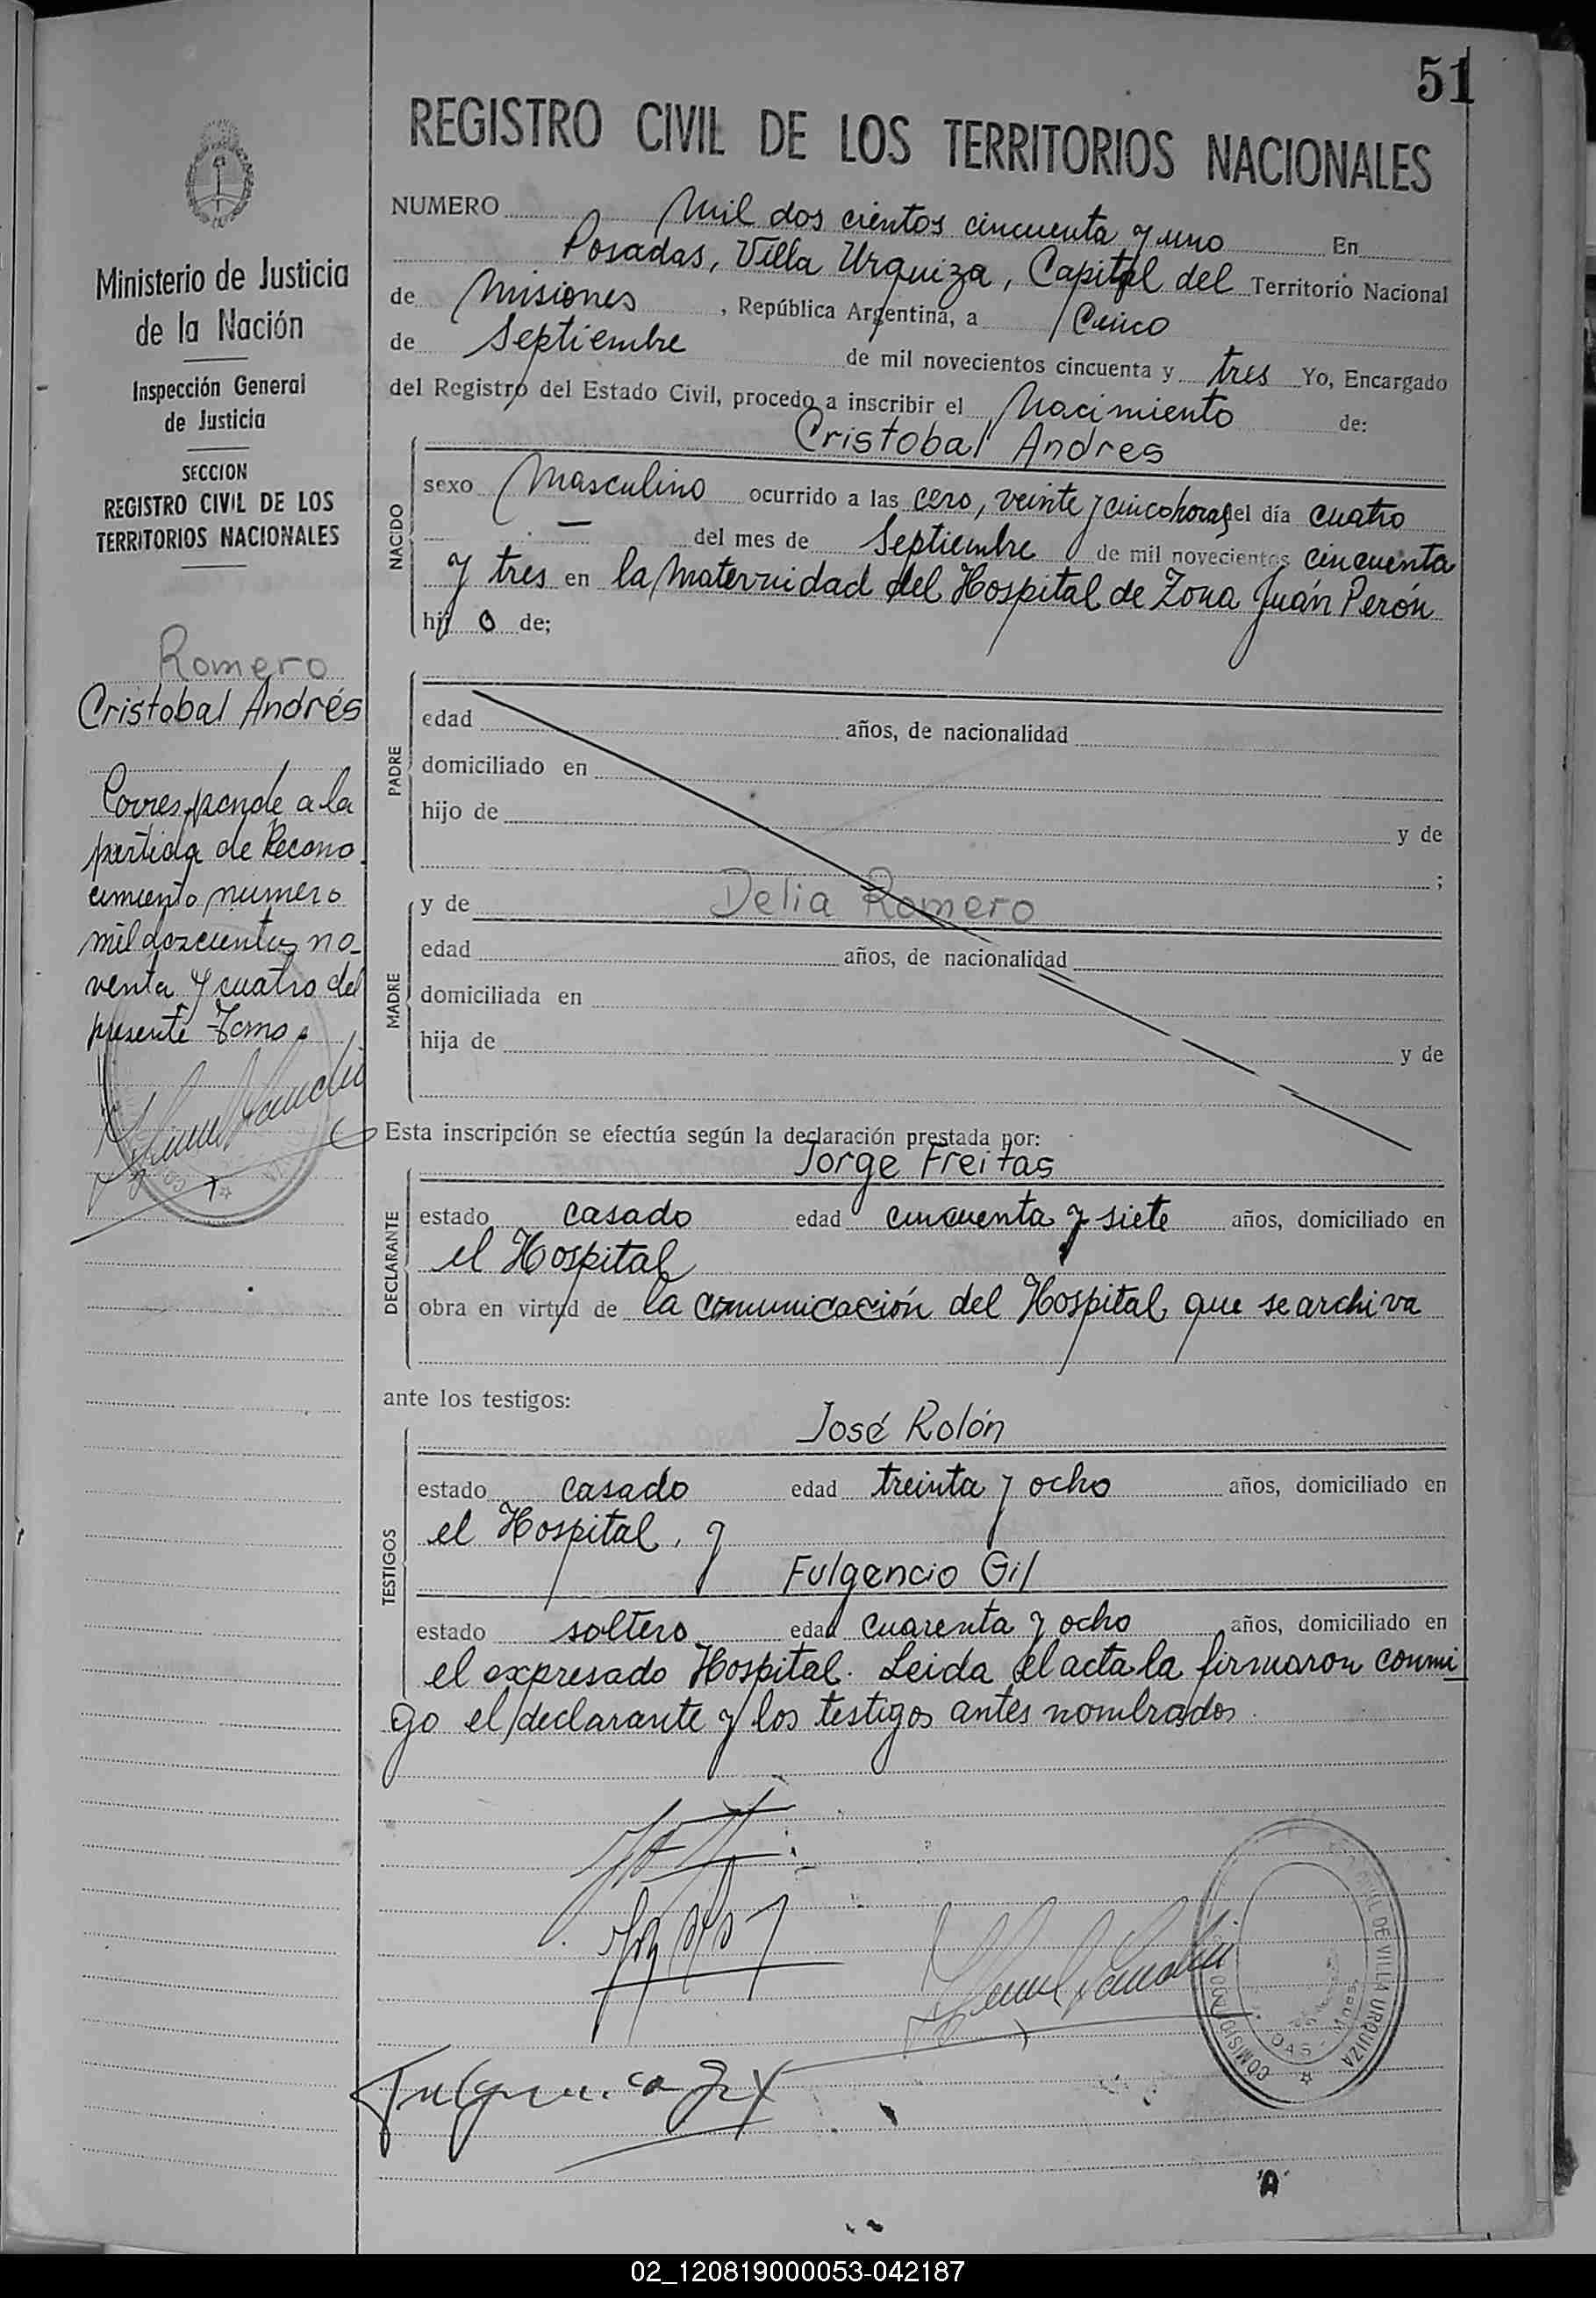 51
REGISTRO CIVIL DE LOS TERRITORIOS NACIONALES
Ministerio de Justicia
de la Nación
Inspección General
de Justicia
SECCION
REGISTRO CIVIL DE LOS
TERRITORIOS NACIONALES
Romero
Cristobal Andrés
Corresponde a la
partida de Recono
cimiento numero
mil doscientos no_
venta y cuatro del
presente Tomo.
NUMERO mil dos cientos cincuenta y uno En
Posadas, Villa Urquiza, Capital del Territorio Nacional
de Misiones, República Argentina, a Cinco
de Septiembre de mil novecientos cincuenta y tres Yo, Encargado
del Registro del Estado Civil, procedo a inscribir el Nacimiento de:
Cristobal Andres
NACIDO
sexo Masculino ocurrido a las cero, veinte y cinco horas del día cuatro
— del mes de Septiembre de mil novecientos cincuenta
y tres en la Maternidad del Hospital de Zona Juán Perón
hijo de;
PADRE
edad años, de nacionalidad
domiciliado en
hijo de y de
;
MADRE
y de Delia Romero
edad años, de nacionalidad
domiciliada en
hija de y de
Esta inscripción se efectúa según la declaración prestada por:
Jorge Freitas
DECLARANTE
estado casado edad cincuenta y siete años, domiciliado en
el Hospital
obra en virtud de la comunicación del Hospital, que se archiva
ante los testigos:
José Rolón
TESTIGOS
estado casado edad treinta y ocho años, domiciliado en
el Hospital, y
Fulgencio Gil
estado soltero edad cuarenta y ocho años, domiciliado en
el expresado Hospital. Leida el acta la firmaron conmi
go el declarante y los testigos antes nombrados.
DE VILLA URQUIZA
A
02_120819000053-042187